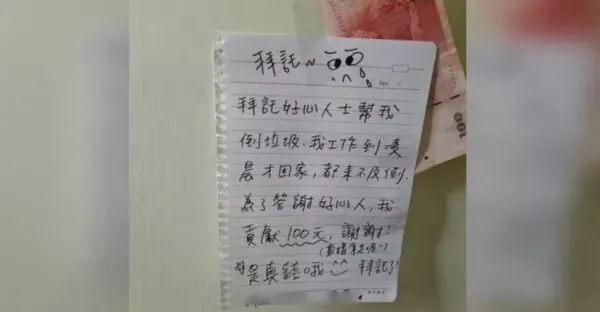 拜託~
拜託好心人士幫我
倒垃圾、我工作到凌
晨才回家，都來不及倒.
為了答謝好心人，我
貢獻100元，謝謝!
是真錢哦^^ 拜託了!
100